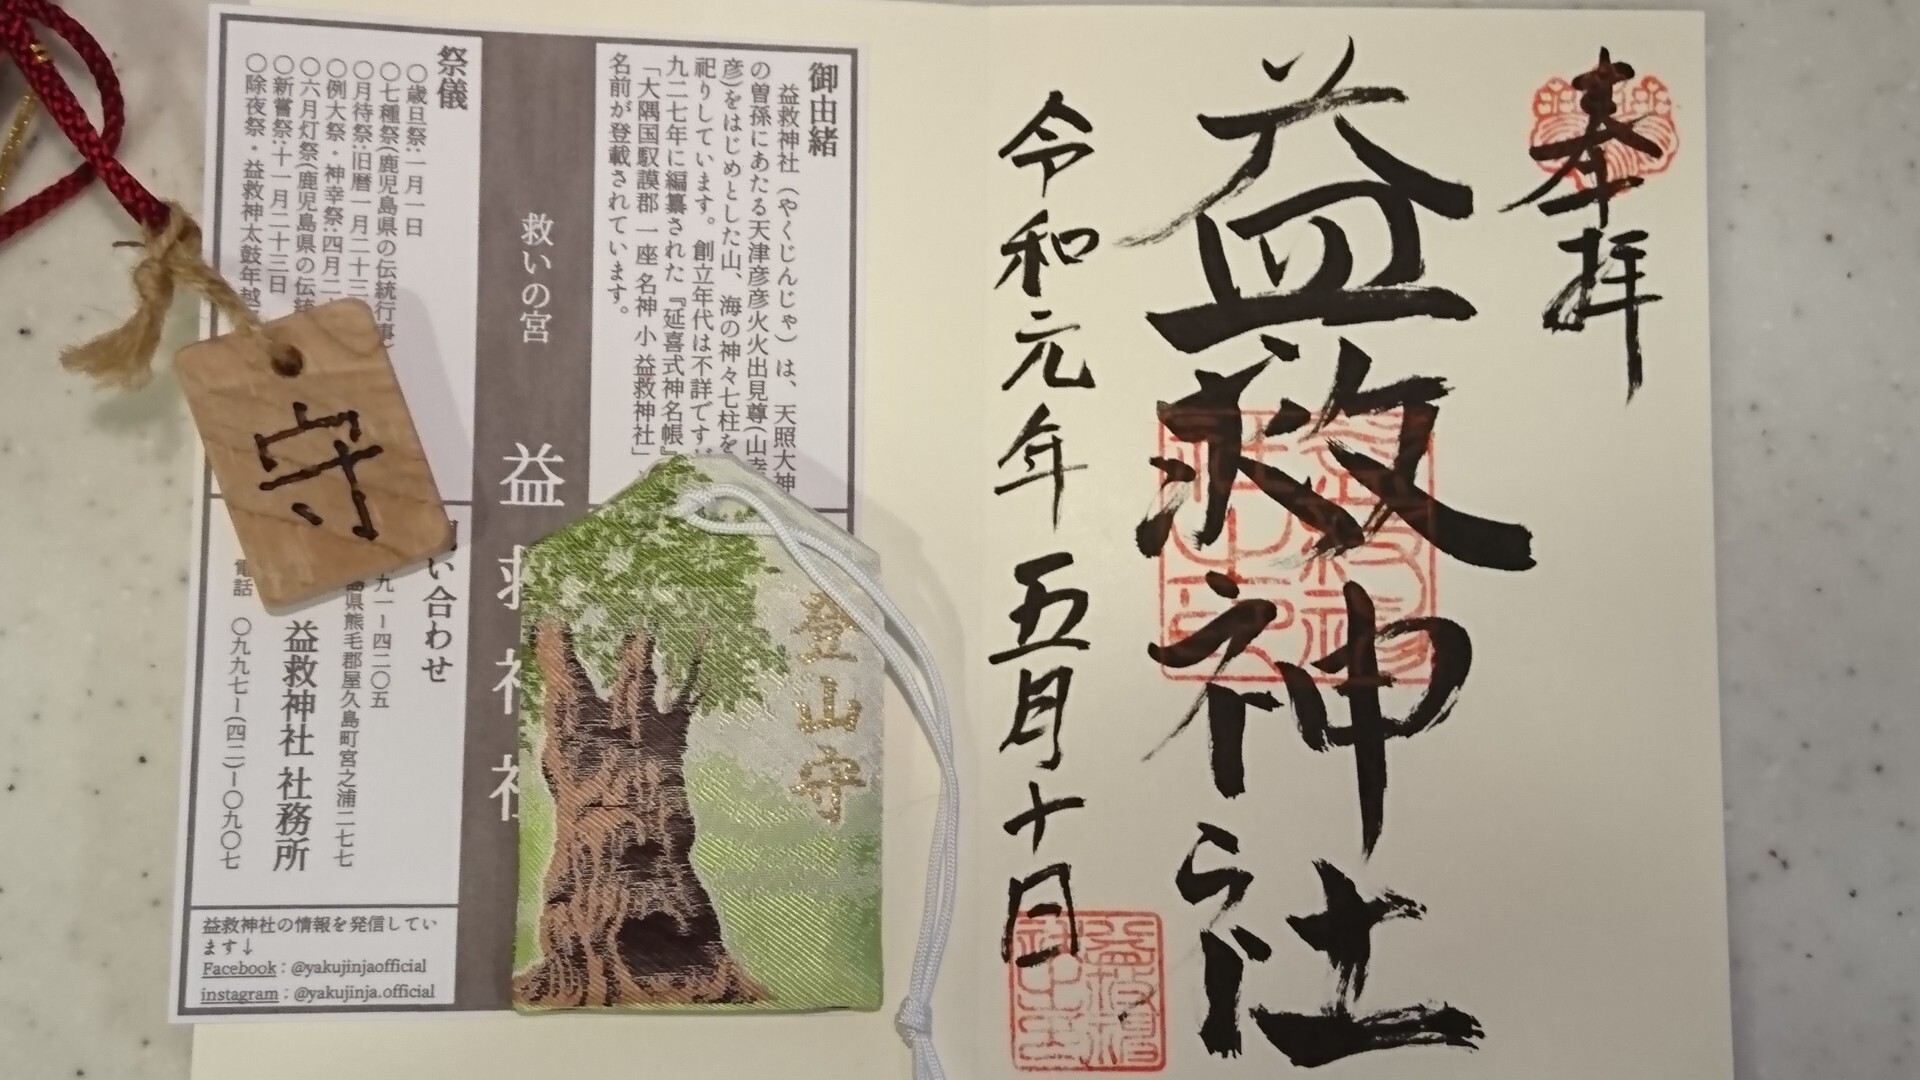 奉拝
益救神社
令和元年五月十日
御由緒
益救神社（やくじんじゃ）は、天照大神
の曽孫にあたる天津彦彦火火出見尊(山幸
彦)をはじめとした山、海の神々七柱を
祀りしています。創立年代は不詳です
九二七年に編纂された『延喜式神名帳』
「大隅国馭謨郡 一座 名神 小 益救神社」
名前が登載されています。
救いの宮
益救神社
祭儀
〇歳旦祭:一月一日
〇七種祭(鹿児島県の伝統行事)
〇月待祭:旧暦一月二十三
〇例大祭・神幸祭:四月二
〇六月灯祭(鹿児島県の伝統
〇新嘗祭:十一月二十三日
〇除夜祭・益救神太鼓年越
い合わせ
九一ー四二〇五
島県熊毛郡屋久島町宮之浦二七七
益救神社 社務所
電話 〇九九七ー(四二)ー〇九〇七
益救神社の情報を発信してい
ます↓
Facebook：@yakujinjaofficial
instagram：@yakujinja.official
守
登山守